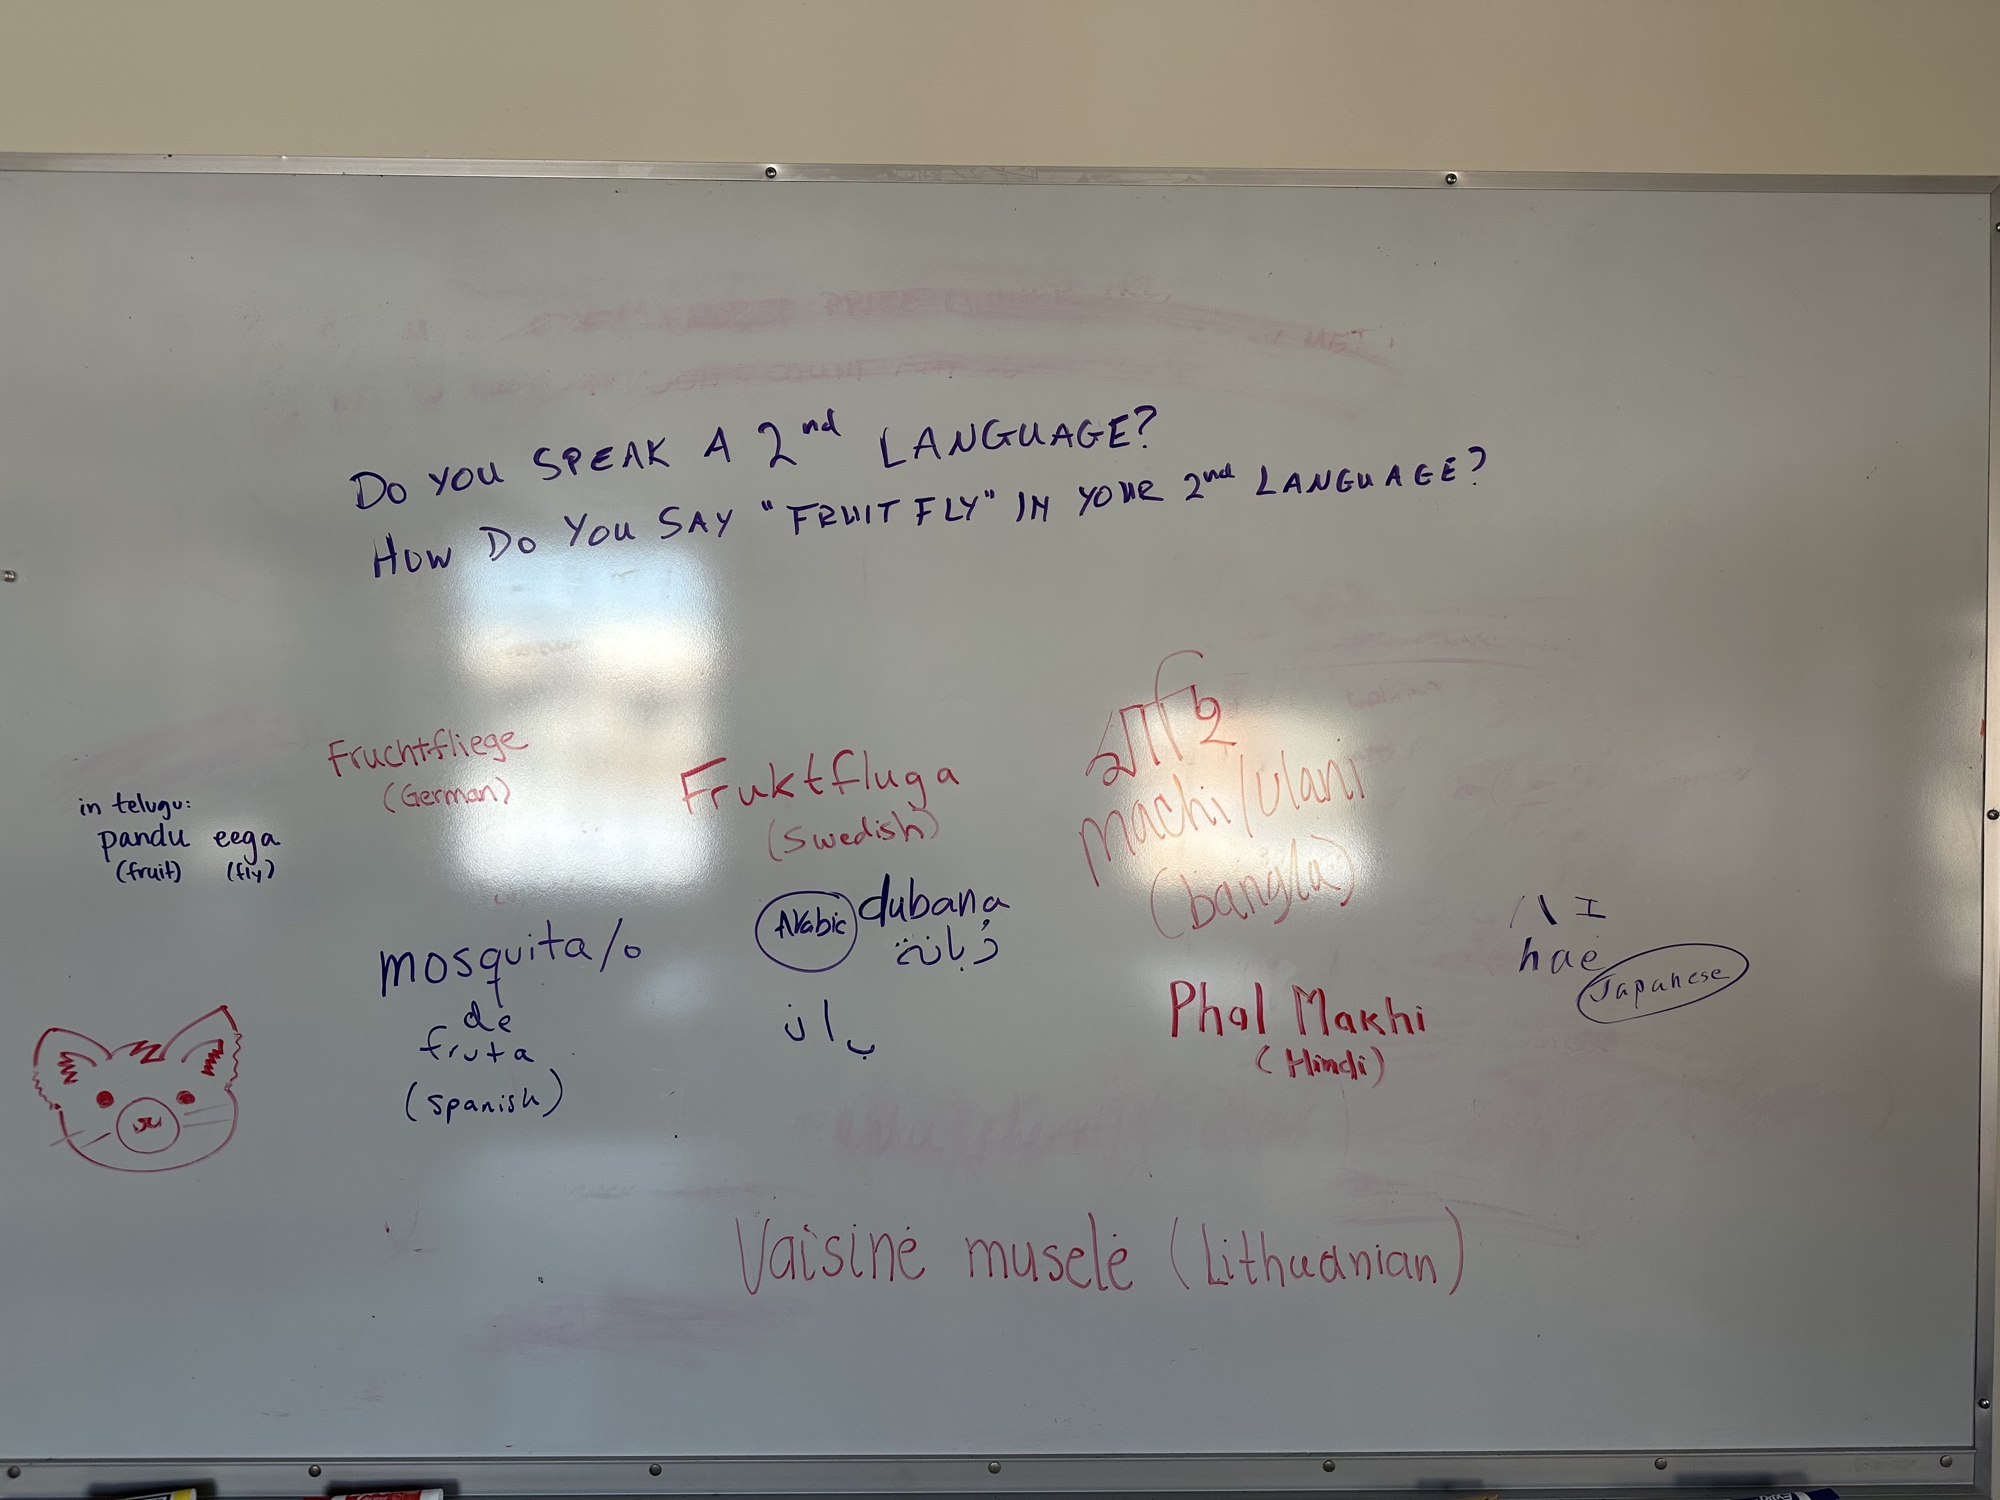 DO YOU SPEAK A 2nd LANGUAGE?
HOW DO YOU SAY "FRUIT FLY" IN YOUR 2nd LANGUAGE?
in telugu:
pandu eega
(fruit) (fly)
Fruchtfliege
(German)
Fruktfluga
(Swedish)
মাছি
machi/ulani
(bangla)
mosquita/o
de
fruta
(spanish)
Arabic dubana
ذُبانة
ハエ
hae
Japanese
Phal Makhi
(Hindi)
Vaisinė muselė (Lithuanian)